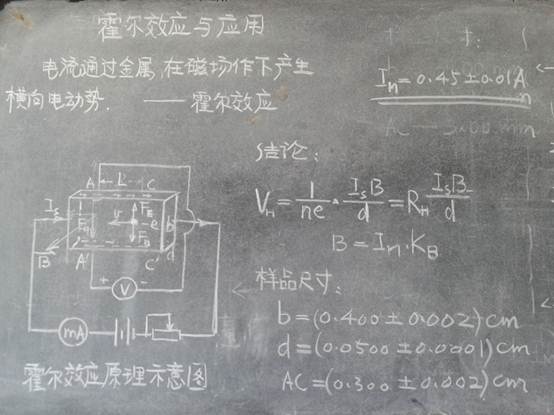 霍尔效应与应用
电流通过金属,在磁场作下产生
横向电动势. ——霍尔效应
Im=0.45±0.01A
结论:
VH = 1/ne · IsB/d = RH IsB/d
B = Im·KB
样品尺寸:
b=(0.400±0.002)cm
d=(0.0500±0.0001)cm
AC=(0.300±0.002)cm
A L C
Is
FE
v -e b
FB
B A' C' d
+ V -
mA
霍尔效应原理示意图